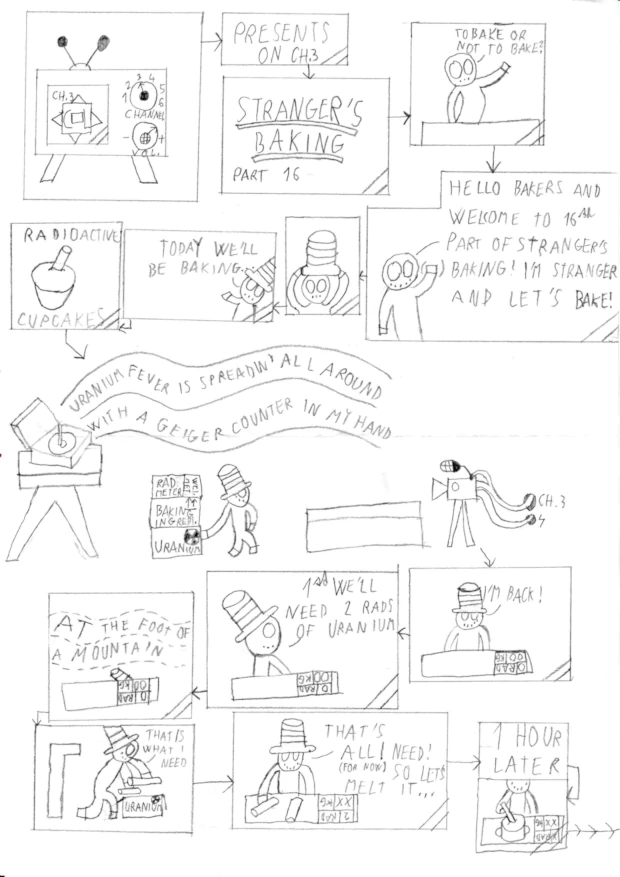 PRESENTS
ON CH.3
CH.3
1 2 3 4 5 6
CHANNEL
- +
VOL.
STRANGER'S
BAKING
PART 16
TO BAKE OR
NOT TO BAKE?
HELLO BAKERS AND
WELCOME TO 16TH
PART OF STRANGER'S
BAKING! I'M STRANGER
AND LET'S BAKE!
TODAY WE'LL
BE BAKING...
RADIOACTIVE
CUPCAKES
URANIUM FEVER IS SPREADIN' ALL AROUND
WITH A GEIGER COUNTER IN MY HAND
RAD
METER
BAKING
INGREDI.
URANIUM
CH.3
I'M BACK!
00 KG
0 RAD
1ST WE'LL
NEED 2 RADS
OF URANIUM
00 KG
0 RAD
AT THE FOOT OF
A MOUNTAIN
00 KG
0 RAD
THAT IS
WHAT I
NEED
URANIUM
THAT'S
ALL I NEED!
(FOR NOW) SO LET'S
MELT IT...
XX KG
2 RAD
1 HOUR
LATER
XX KG